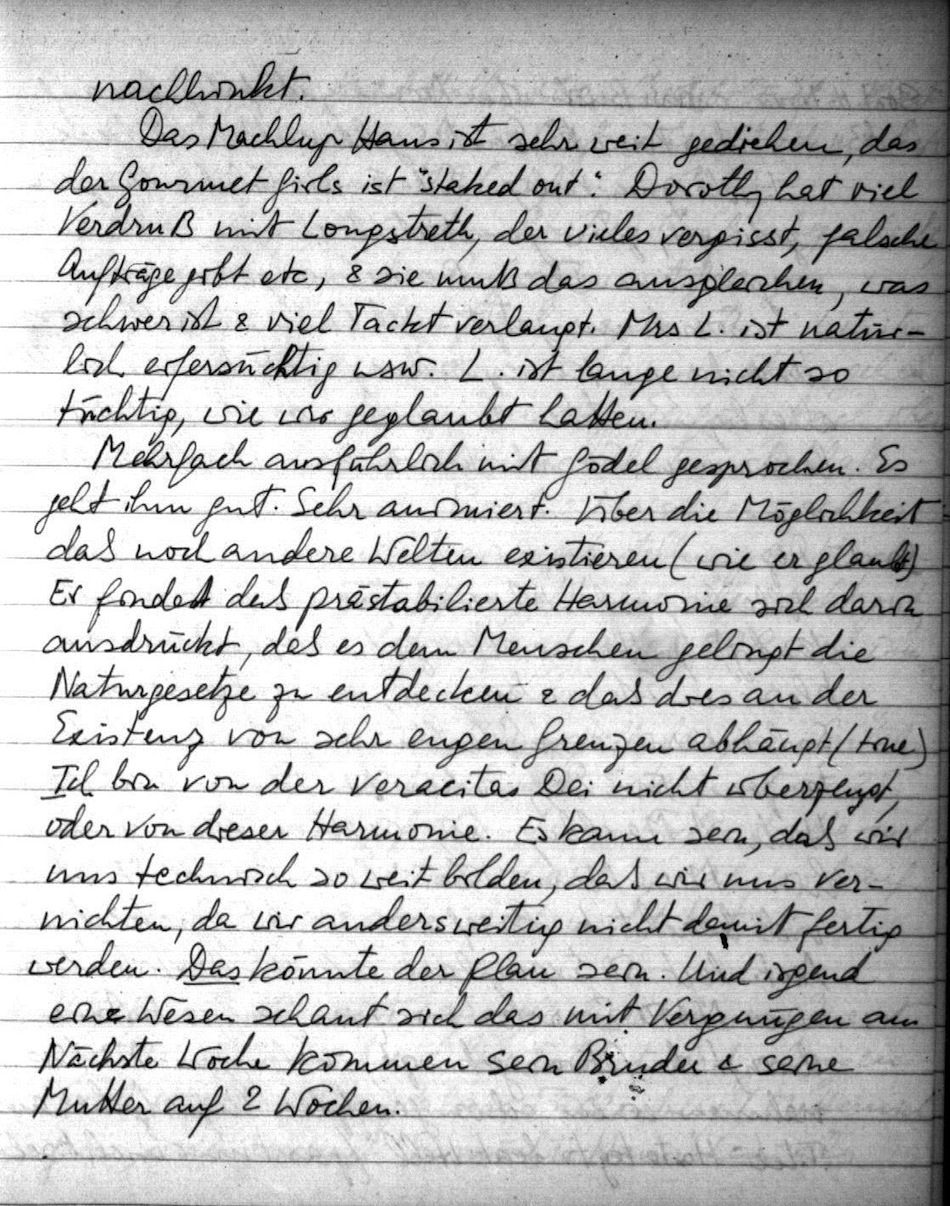 nachhinkt.
Das Machlup Haus ist sehr weit gediehen, das
der Gourmet Girls ist "staked out". Dorothy hat viel
Verdruß mit Longstreth, der vieles vergisst, falsche
Aufträge gibt etc, & sie muß das ausgleichen, was
schwer ist & viel Tackt verlangt. Mrs L. ist natür-
lich eifersüchtig usw. L. ist lange nicht so
tüchtig, wie wir geglaubt hatten.
Mehrfach ausführlich mit Gödel gesprochen. Es
geht ihm gut. Sehr animiert. Über die Möglichkeit
daß noch andere Welten existieren (wie er glaubt)
Er findet daß prästabilierte Harmonie sich darin
ausdrückt, daß es dem Menschen gelingt die
Naturgesetze zu entdecken & daß dies an der
Existenz von sehr engen Grenzen abhängt (true)
Ich bin von der Veracitas Dei nicht überzeugt,
oder von dieser Harmonie. Es kann sein, daß wir
uns technisch so weit bilden, daß wir uns ver-
nichten, da wir andersweitig nicht damit fertig
werden. Das könnte der Plan sein. Und irgend
eine Wesen schaut sich das mit Vergnügen an.
Nächste Woche kommen sein Bruder & seine
Mutter auf 2 Wochen.